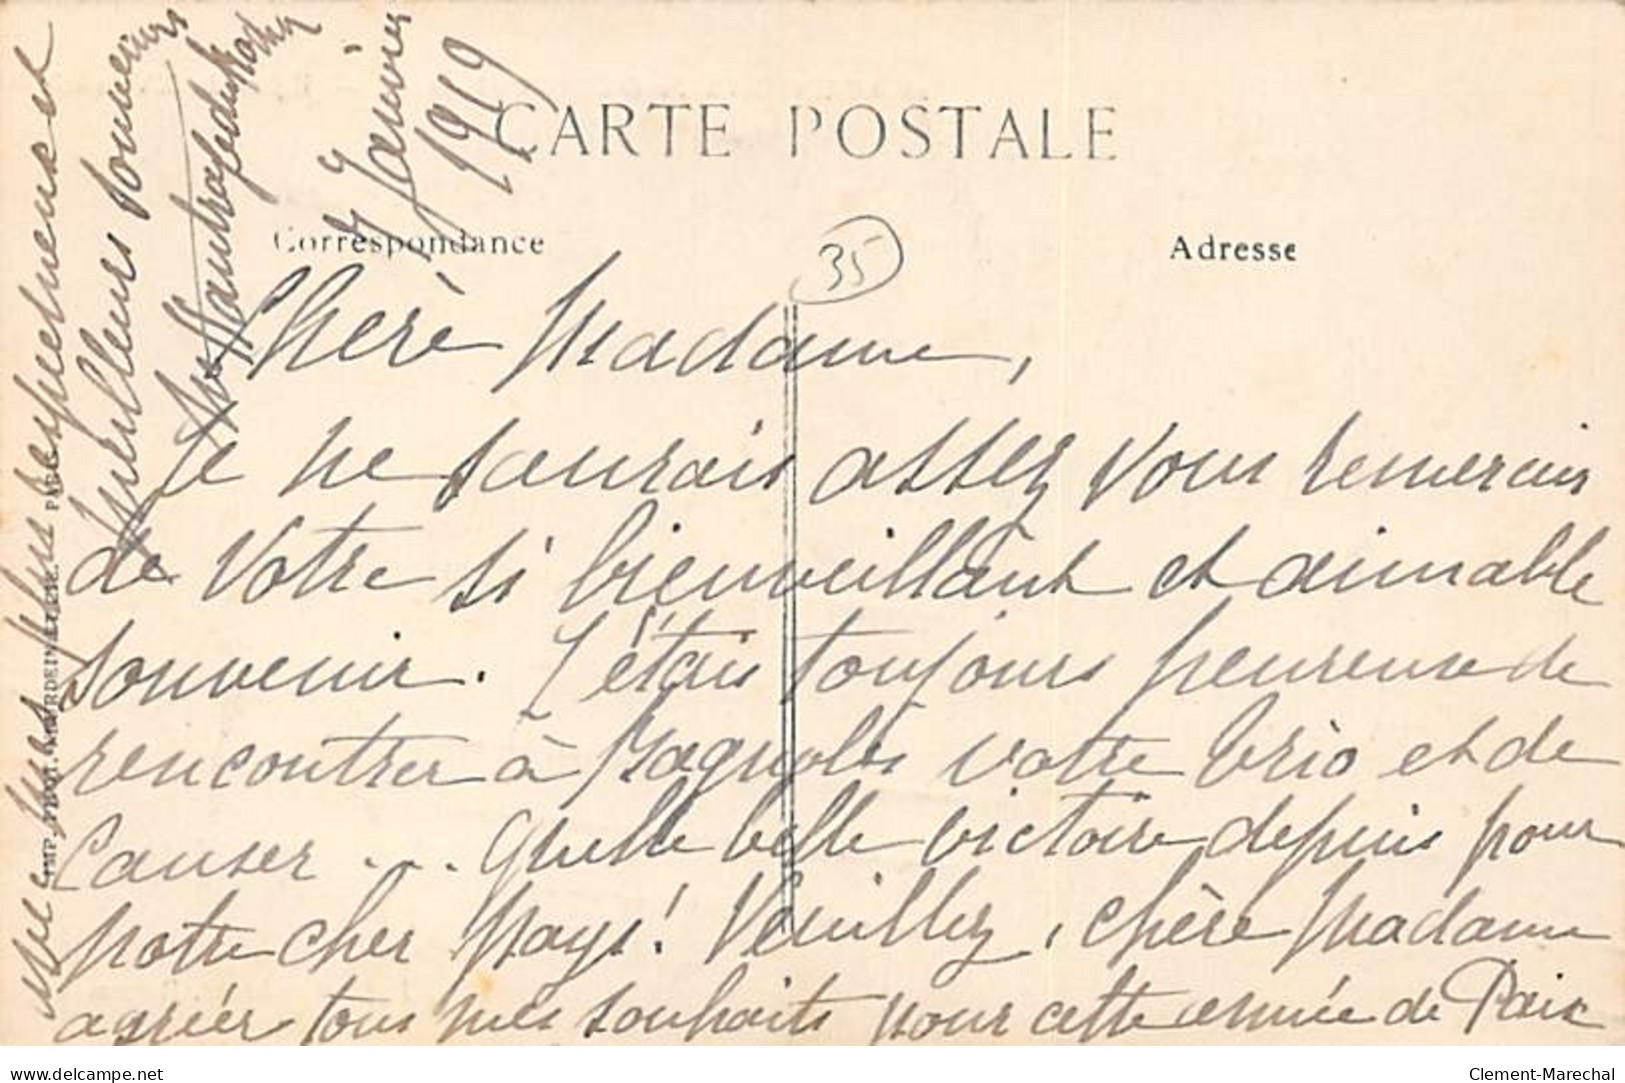 CARTE POSTALE
Correspondance
Adresse
35
7 Janvier
1919
Chère Madame,
Je ne saurais assez vous remercier
de votre si bienveillant et aimable
souvenir. J'étais toujours heureuse de
rencontrer à Bagnoles votre brio et de
causer ... Quelle belle victoire depuis pour
notre cher Pays! Veuillez, chère Madame
agréer tous mes souhaits pour cette année de Paix
avec mes plus respectueux et
meilleurs souvenirs
IMP. PHOT. PARIS
Clement-Marechal
www.delcampe.net